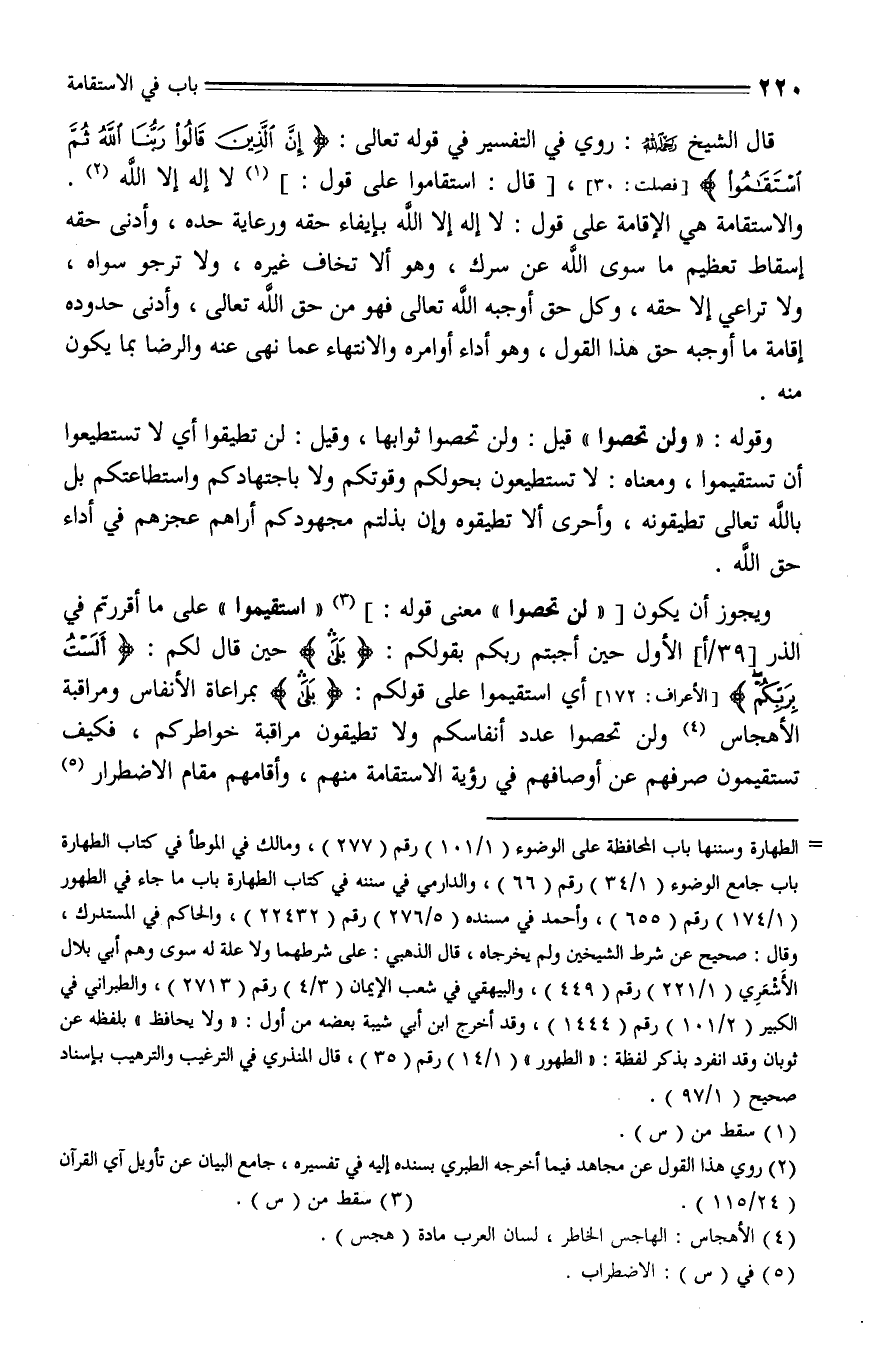 ٢٢٠ باب في الاستقامة
قال الشيخ رحمه الله : روي في التفسير في قوله تعالى : ﴿ إِنَّ ٱلَّذِينَ قَالُوا۟ رَبُّنَا ٱللَّهُ ثُمَّ
ٱسْتَقَـٰمُوا۟ ﴾ [ فصلت: ٣٠] ، [ قال : استقاموا على قول : ] (١) لا إله إلا الله (٢) .
والاستقامة هي الإقامة على قول : لا إله إلا اللَّه بإيفاء حقه ورعاية حده ، وأدنى حقه
إسقاط تعظيم ما سوى اللَّه عن سرك ، وهو ألا تخاف غيره ، ولا ترجو سواه ،
ولا تراعي إلا حقه ، وكل حق أوجبه اللَّه تعالى فهو من حق اللَّه تعالى ، وأدنى حدوده
إقامة ما أوجبه حق هذا القول ، وهو أداء أوامره والانتهاء عما نهى عنه والرضا بما يكون
منه .
وقوله : « ولن تحصوا » قيل : ولن تحصوا ثوابها ، وقيل : لن تطيقوا أي لا تستطيعوا
أن تستقيموا ، ومعناه : لا تستطيعون بحولكم وقوتكم ولا باجتهادكم واستطاعتكم بل
باللَّه تعالى تطيقونه ، وأحرى ألا تطيقوه وإن بذلتم مجهودكم أراهم عجزهم في أداء
حق اللَّه .
ويجوز أن يكون [ « لن تحصوا » معنى قوله : ] (٣) « استقيموا » على ما أقررتم في
الذر [٣٩/أ] الأول حين أجبتم ربكم بقولكم : ﴿ بَلَىٰ ﴾ حين قال لكم : ﴿ أَلَسْتُ
بِرَبِّكُمْ ﴾ [الأعراف: ١٧٢] أي استقيموا على قولكم : ﴿ بَلَىٰ ﴾ بمراعاة الأنفاس ومراقبة
الأهجاس (٤) ولن تحصوا عدد أنفاسكم ولا تطيقون مراقبة خواطركم ، فكيف
تستقيمون صرفهم عن أوصافهم في رؤية الاستقامة منهم ، وأقامهم مقام الاضطرار (٥)
= الطهارة وسننها باب المحافظة على الوضوء ( ١٠١/١ ) رقم ( ٢٧٧ ) ، ومالك في الموطأ في كتاب الطهارة
باب جامع الوضوء ( ٣٤/١ ) رقم ( ٦٦ ) ، والدارمي في سننه في كتاب الطهارة باب ما جاء في الطهور
( ١٧٤/١ ) رقم ( ٦٥٥ ) ، وأحمد في مسنده ( ٢٧٦/٥ ) رقم ( ٢٢٤٣٢ ) ، والحاكم في المستدرك ،
وقال : صحيح عن شرط الشيخين ولم يخرجاه ، قال الذهبي : على شرطهما ولا علة له سوى وهم أبي بلال
الأَشْعَرِي ( ٢٢١/١ ) رقم ( ٤٤٩ ) ، والبيهقي في شعب الإيمان ( ٤/٣ ) رقم ( ٢٧١٣ ) ، والطبراني في
الكبير ( ١٠١/٢ ) رقم ( ١٤٤٤ ) ، وقد أخرج ابن أبي شيبة بعضه من أول : « ولا يحافظ » بلفظه عن
ثوبان وقد انفرد بذكر لفظة : « الطهور » ( ١٤/١ ) رقم ( ٣٥ ) ، قال المنذري في الترغيب والترهيب بإسناد
صحيح ( ٩٧/١ ) .
(١) سقط من ( س ) .
(٢) روي هذا القول عن مجاهد فيما أخرجه الطبري بسنده إليه في تفسيره ، جامع البيان عن تأويل آي القرآن
( ١١٥/٢٤ ) . (٣) سقط من ( س ) .
(٤) الأهجاس : الهاجس الخاطر ، لسان العرب مادة ( هجس ) .
(٥) في ( س ) : الاضطراب .